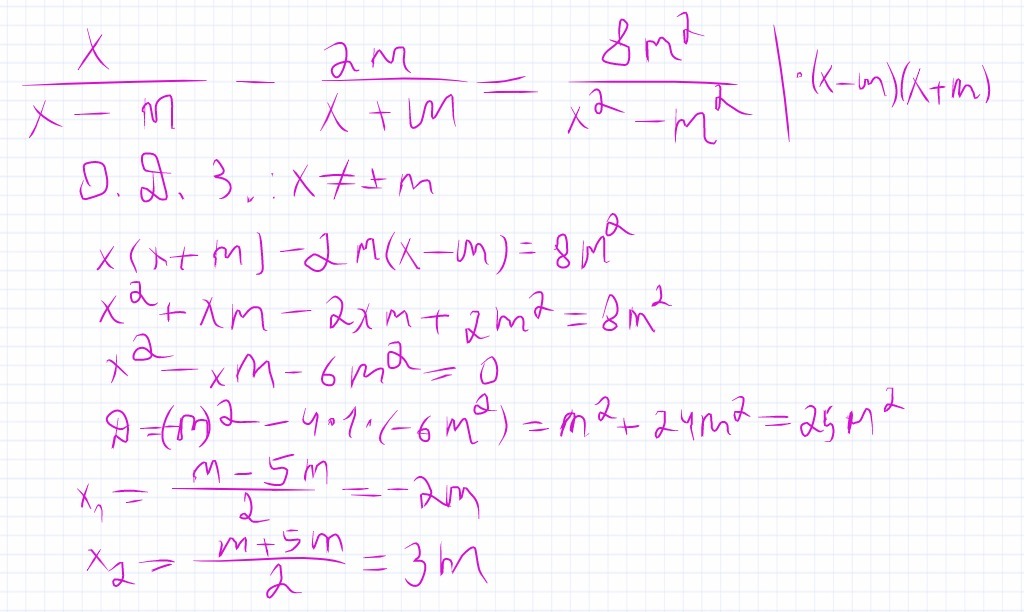 x/(x − m) − 2m/(x + m) = 8m²/(x² − m²) | · (x−m)(x+m)
О. Д. З.: x ≠ ± m
x(x + m) − 2m(x − m) = 8m²
x² + xm − 2xm + 2m² = 8m²
x² − xm − 6m² = 0
D = (−m)² − 4·1·(−6m²) = m² + 24m² = 25m²
x₁ = (m − 5m)/2 = −2m
x₂ = (m + 5m)/2 = 3m